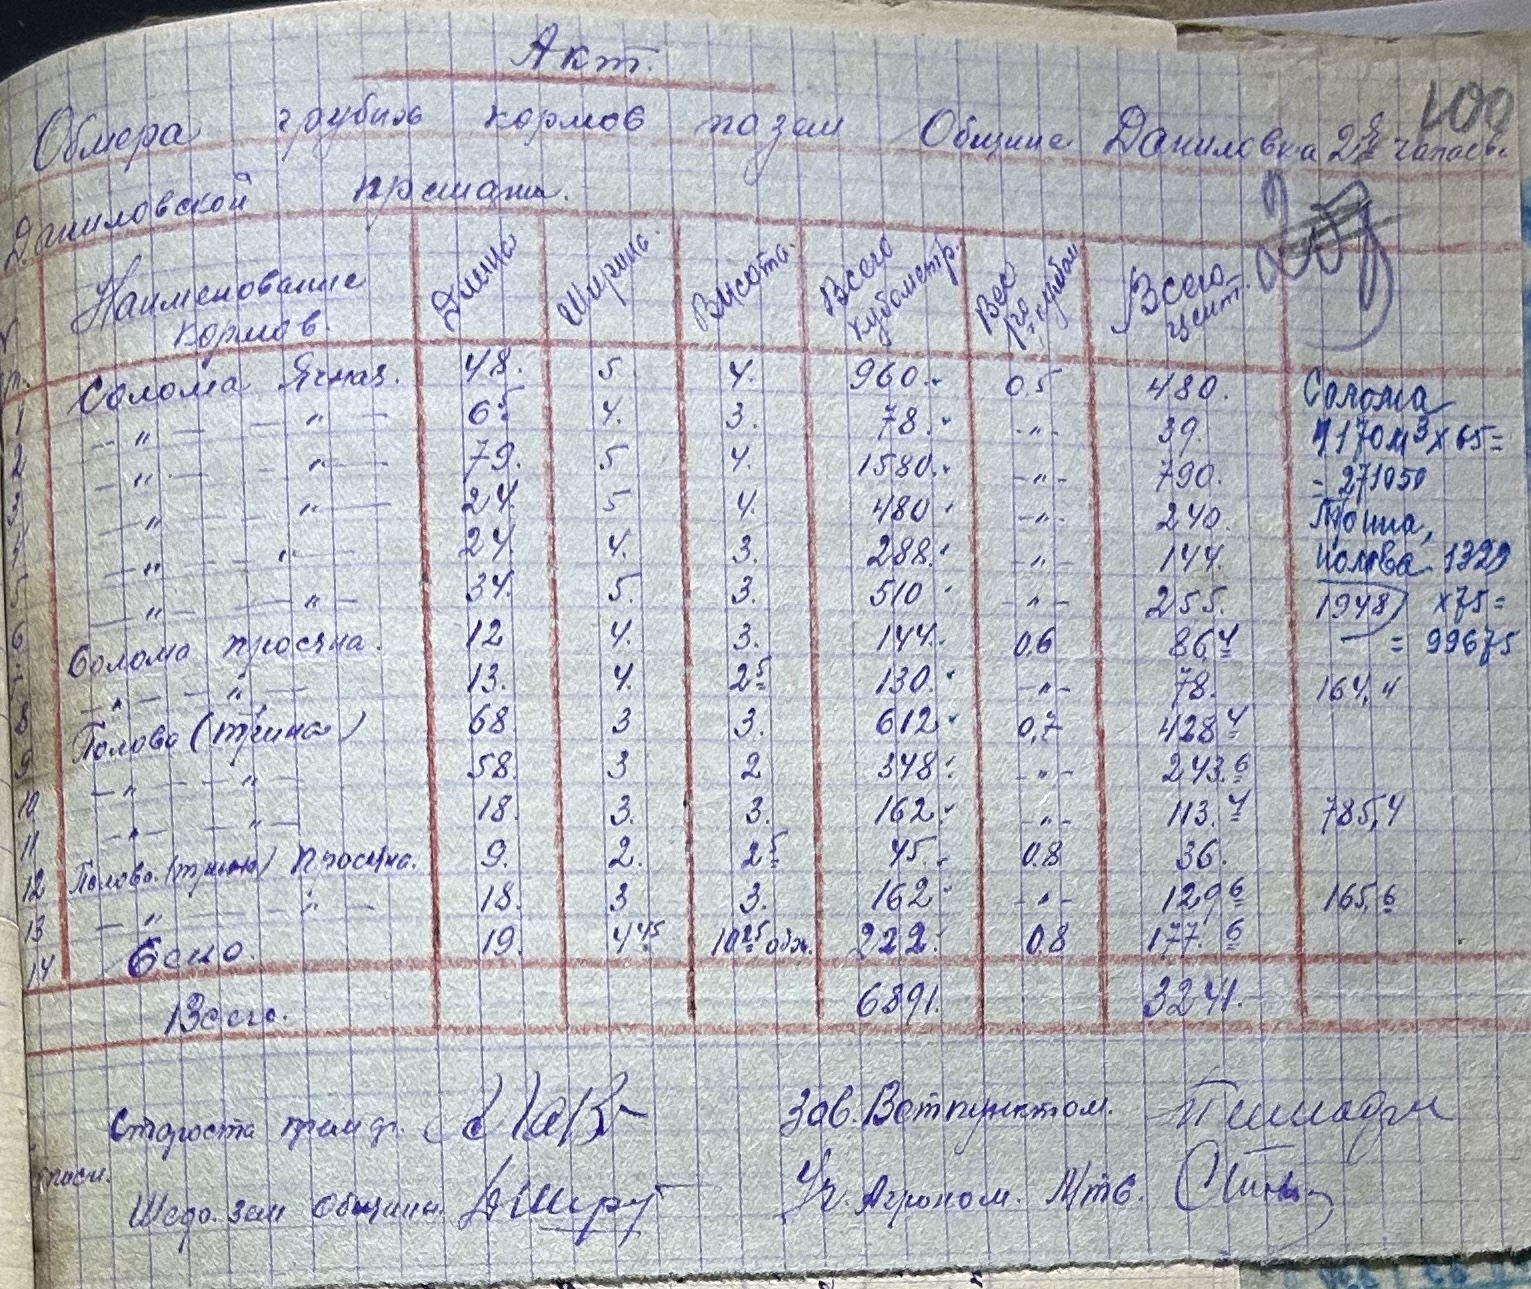 Акт.
100
Обмера грубих кормов Общине Даниловка 2й
Даниловской
Наименование кормов. Длина Ширина. Высота. Всего кубометр. Вес Всего цент.
1 Солома Ячная. 48. 5. 4. 960. 0,5 480. Солома
2 -"- -"- 6⁵ 4. 3. 78. -"- 39. 4170 м³ х 65=
3 -"- -"- 79. 5 4. 1580. -"- 790. = 271050
4 -"- -"- 24. 5 4. 480 -"- 240.
5 -"- -"- 24. 4. 3. 288. -"- 144. полова 1329
6 -"- -"- 34. 5. 3. 510 -"- 255. 1948) х75=
7 Солома просяна. 12 4. 3. 144. 0,6 86,4 = 99675
8 -"- -"- 13. 4. 2⁵ 130. -"- 78. 164,4
9 Полова (трина) 68 3 3. 612 0,7 428 4
10 -"- -"- 58 3 2 348. -"- 243. 6
11 -"- -"- 18. 3. 3. 162 -"- 113. 4 785,4
12 Полова (трина) просяна. 9. 2. 2⁵ 45. 0.8 36.
13 -"- -"- 18. 3 3. 162 -"- 129 6 165,6
14 Сено. 19. 4⁴⁵ 10²⁵ обж. 222. 0.8 177. 6
Всего. 6891. 3241.
Староста Зав. Ветпунктом.
Общины. Уч. Агроном. Мтс.